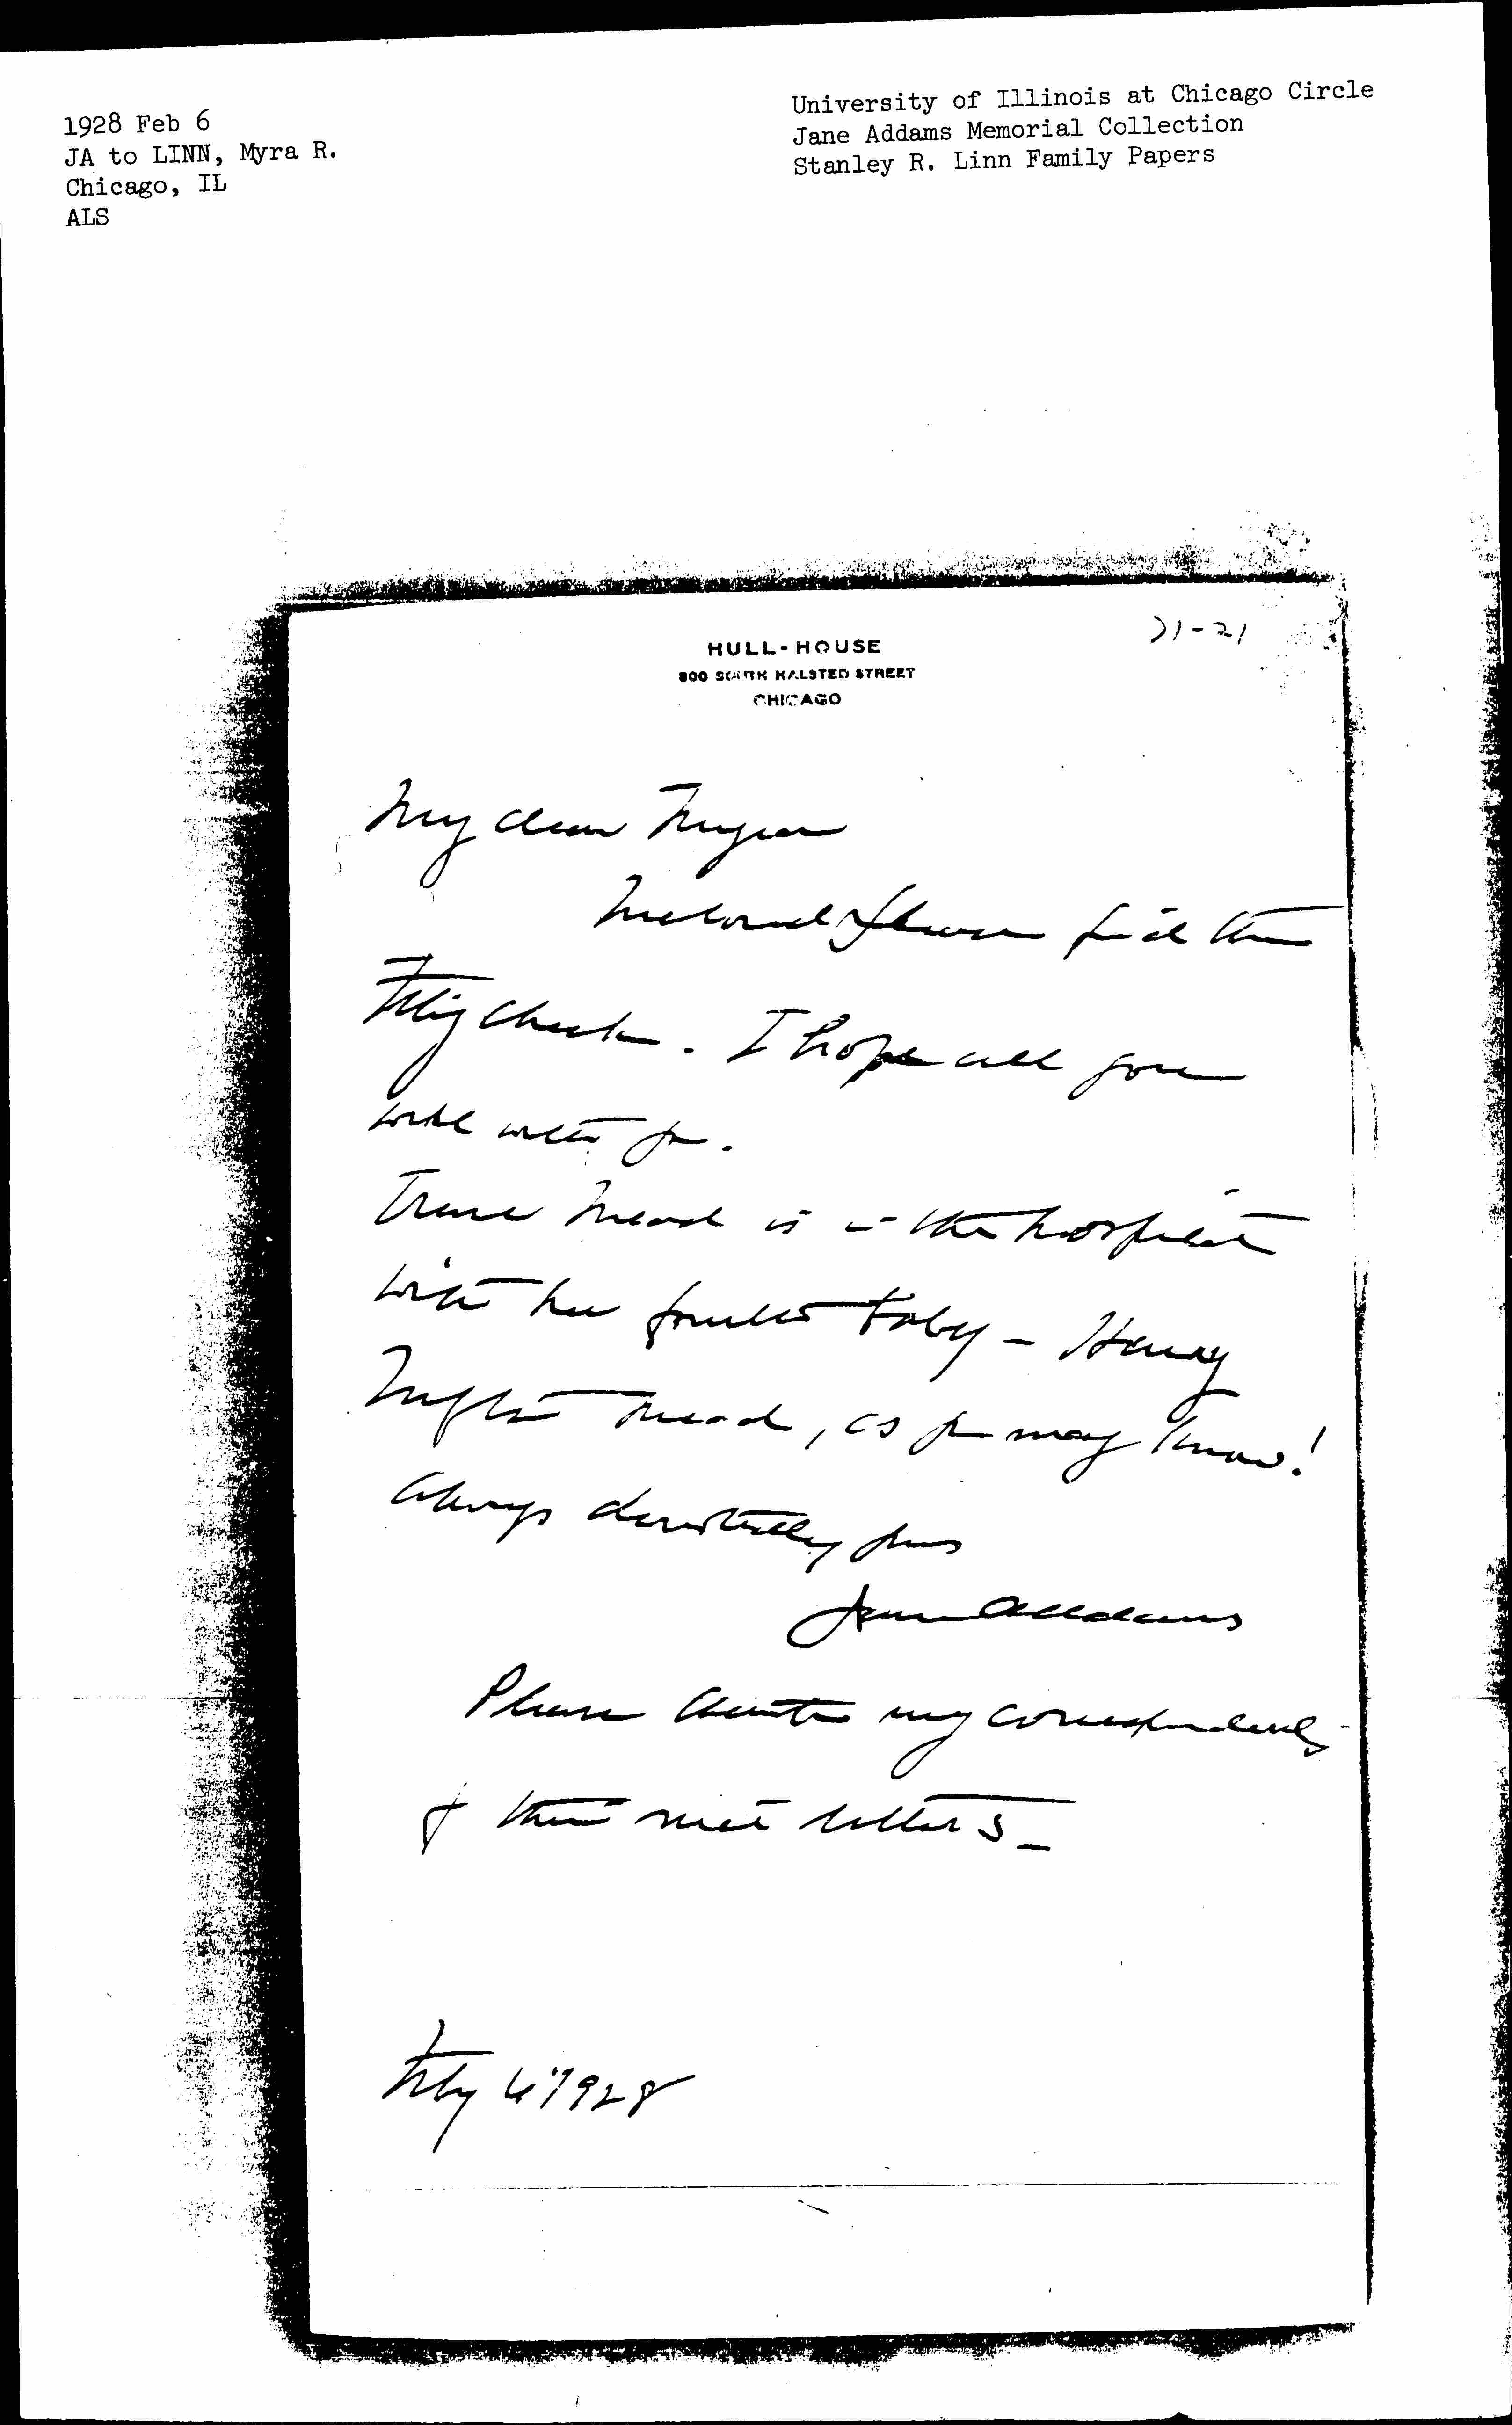 1928 Feb 6
JA to LINN, Myra R.
Chicago, IL
ALS
University of Illinois at Chicago Circle
Jane Addams Memorial Collection
Stanley R. Linn Family Papers
HULL-HOUSE
800 SOUTH HALSTED STREET
CHICAGO
My dear Myra
Inclosed please find the
Feby check. I hope all goes
well with you.
Irene Mead is in the hospital
with her fourth baby - Henry
Mead, as you may know!
Always devotedly yours
Jane Addams
Please my
of their nice letters -
Feby 6" 1928